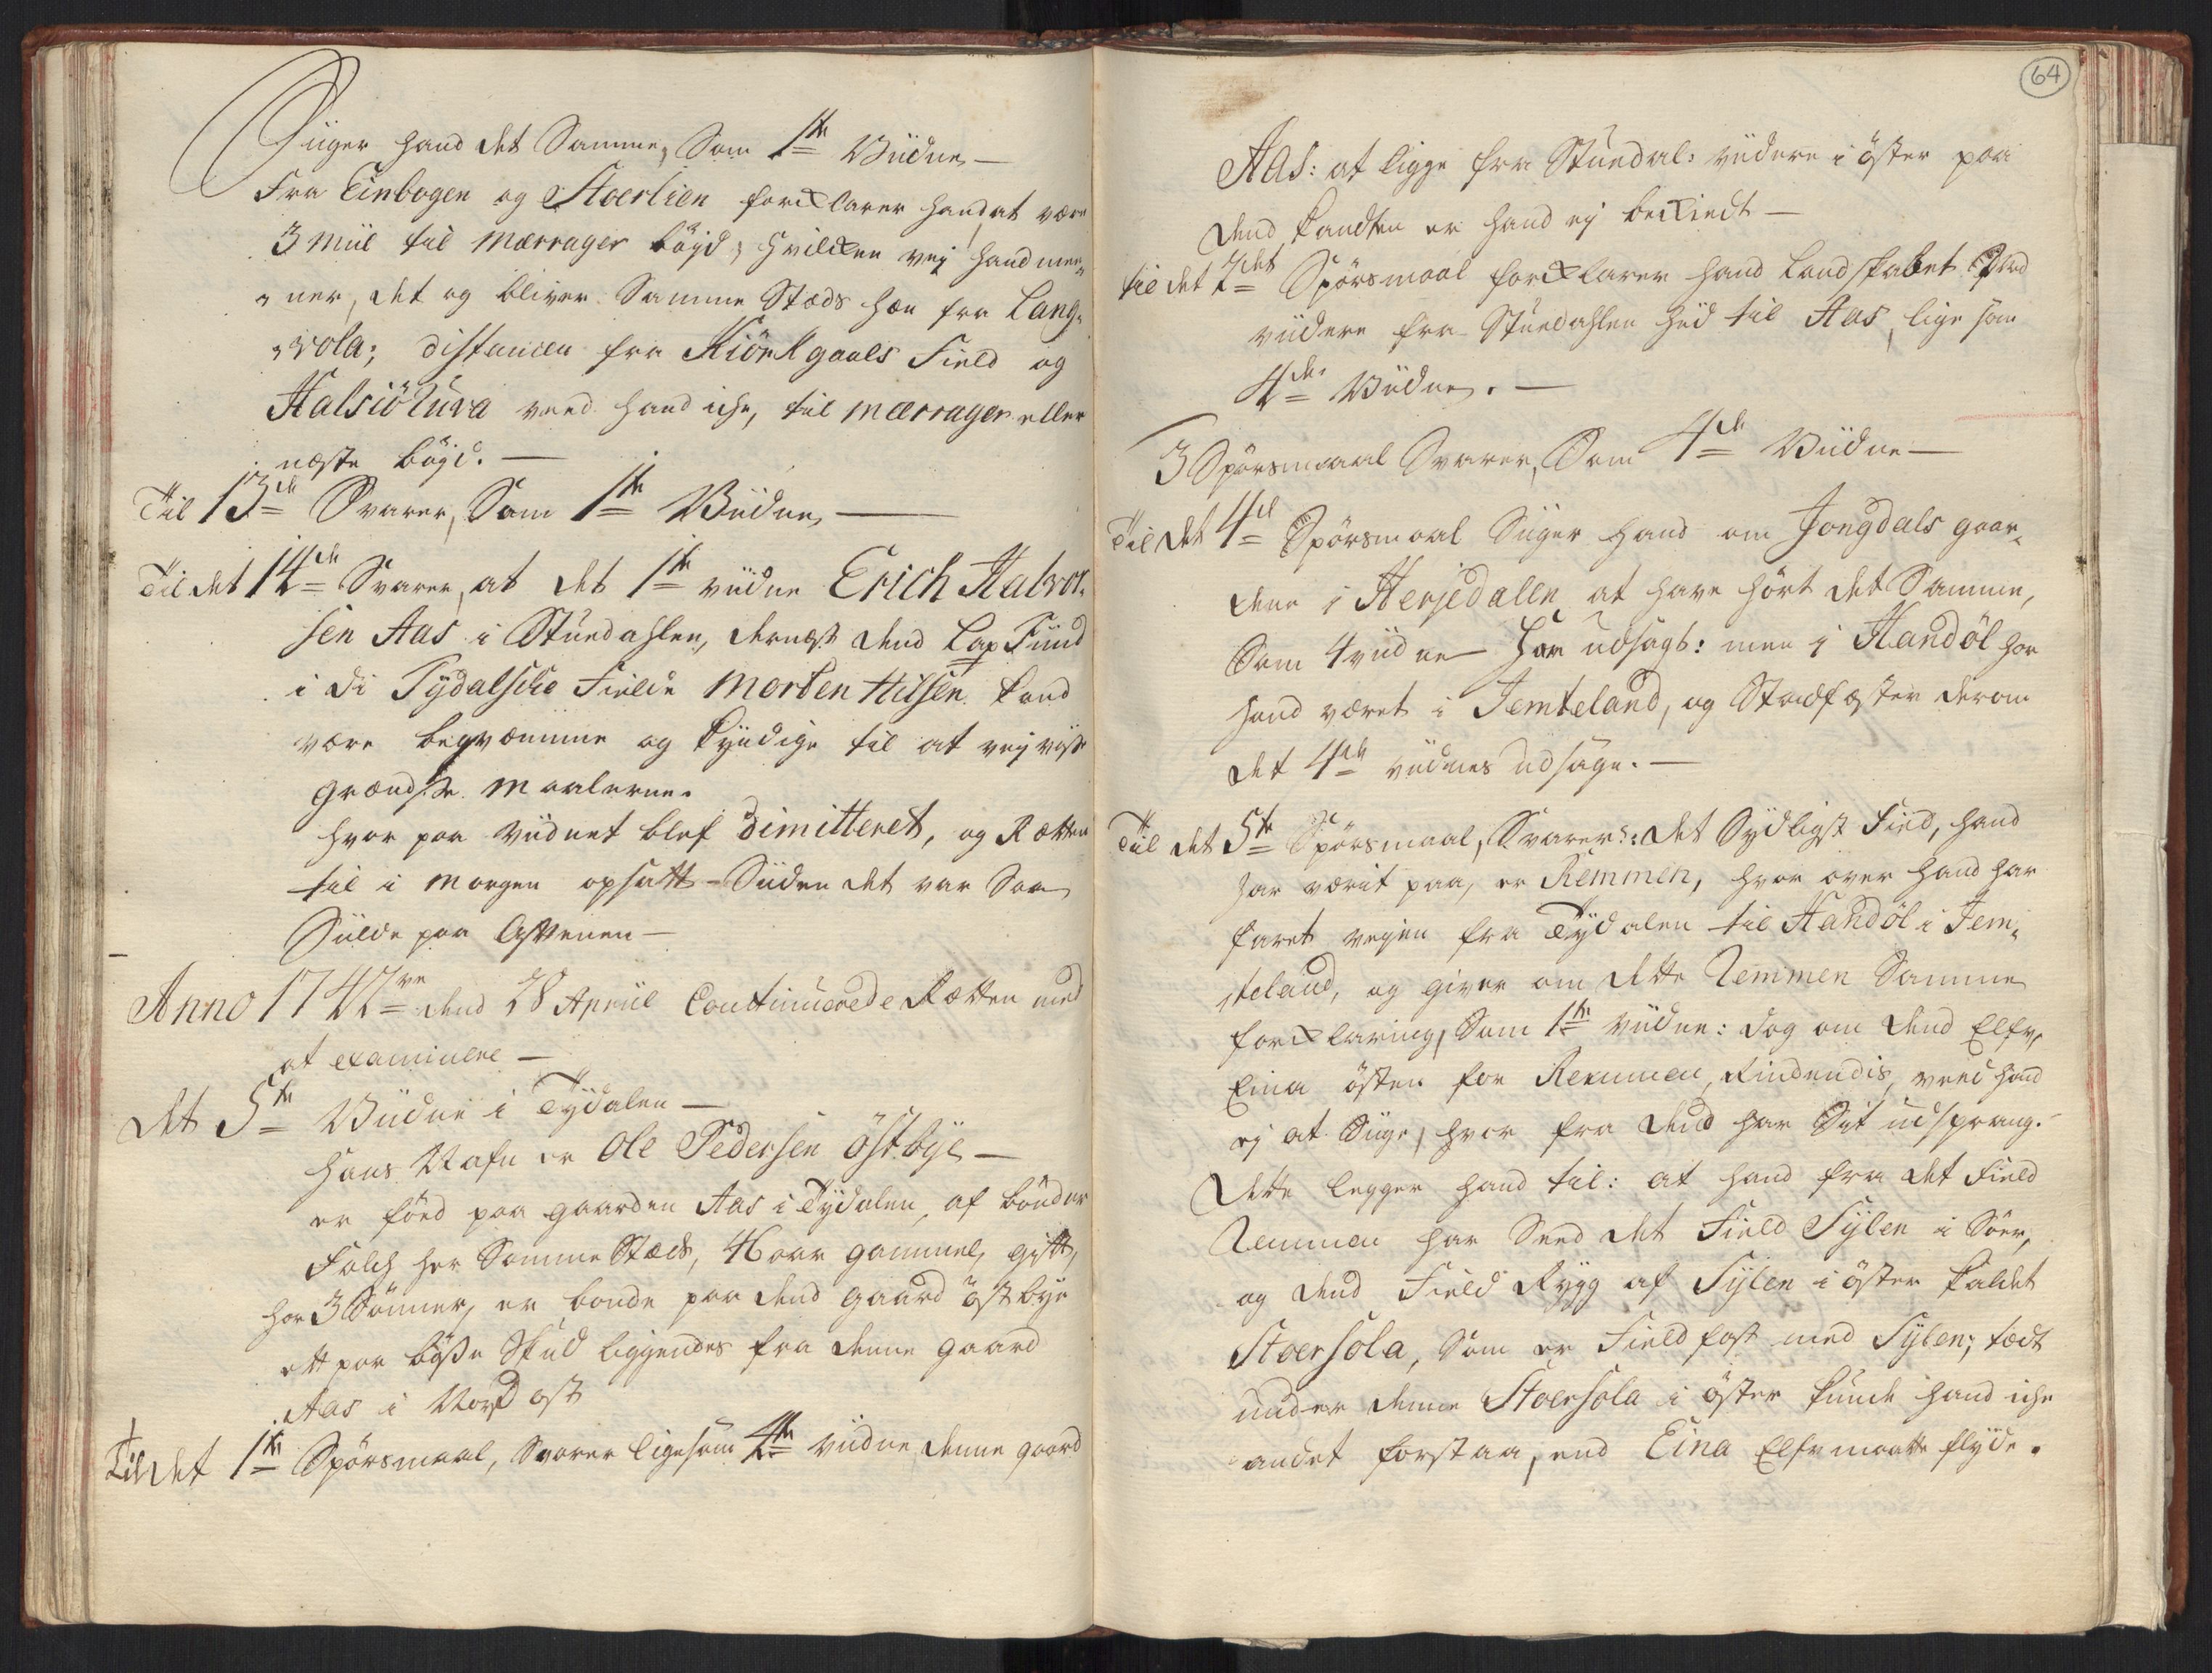 Siiger hand det Samme, Som 1te Viidne, —
Fra Einbogen og Stoerlien forklarer hand, at være
3 miil til Mærrager böyd; hvilcken vej hand mee-
ner, det og bliver Samme Stæds hæn fra Lang-
vola; distancen fra Kiörkgaals Field og
Halsiötuva veed hand iche, til Mærrager eller
næste böyd. —
Til 13de Svarer, Som 1te Viidne, —
Til det 14de Svarer, at det 1te viidne Erich Halvor-
sen Aas i Stuedahlen, dernæst dend Lap Fiind
i di Tydalsche Fielde Morten Nilsen kand
være beqvæmme og kyndige til at vej viise
Grændse Maalerne.
hvor paa viidnet blef dimitteret, og Rætten
til i Morgen opsatt – Siiden det var Saa
Siilde paa Aftenen —
Anno 1742ve dend 28 Apriil Continuerede Rætten med
at examinere —
Det 5te Viidne i Tydalen —
Hans Nafn er Ole Pedersen Östbye —
er föed paa gaarden Aas i Tydalen, af bönder
Folch her Samme Stæds, 46 aar gammel, gift,
har 3 Sönner, er bonde paa dend gaard Östbye
ett par bösse Skud liggendes fra denne gaard
Aas i Nord ost
Til det 1te Spörsmaal, Svarer ligesom 4de viidne, denne gaard
64
Aas: at ligge fra Stuedal: viidere i öster paa
dend kandten er hand ej bekiendt —
til det 2det Spörsmaal forklarer hand Landskabet
viidere fra Stuedahlen hid til Aas, lige som
4de Viidne. —
3 Spörsmaal Svarer, Som 4de Viidne —
Til det 4de Spörsmaal Siiger hand om Jongdals gaar-
dene i Herjedalen at have hört det Samme,
Som 4 viidne har udsagt: men i Handöl har
hand været i Jemteland, og Stadfæster derom
det 4de viidnes udsage. —
Til det 5te Spörsmaal, Svarer: det Sydligst Field, hand
har værit paa, er Remmen, hvor over hand har
faret vejen fra Tydalen til Handöl i Jem-
teland, og giver om dette Remmen Samme
forklaring, Som 1te viidne: dog om dend Elfv,
Eina östen for Remmen, Rindendis, veed hand
ej at Siige, hvor fra dend har Sit udsprang.
Dette legger hand til: at hand fra det Field
Remmen har Seed det Field Sylen i Söer,
og dend Field Rygg af Sylen i öster kaldet
Stoersola, Som er Field fast med Sylen; tædt
under denne Stoersola i öster kunde hand iche
andet forstaa, end Eina Elfv maatte flyde.